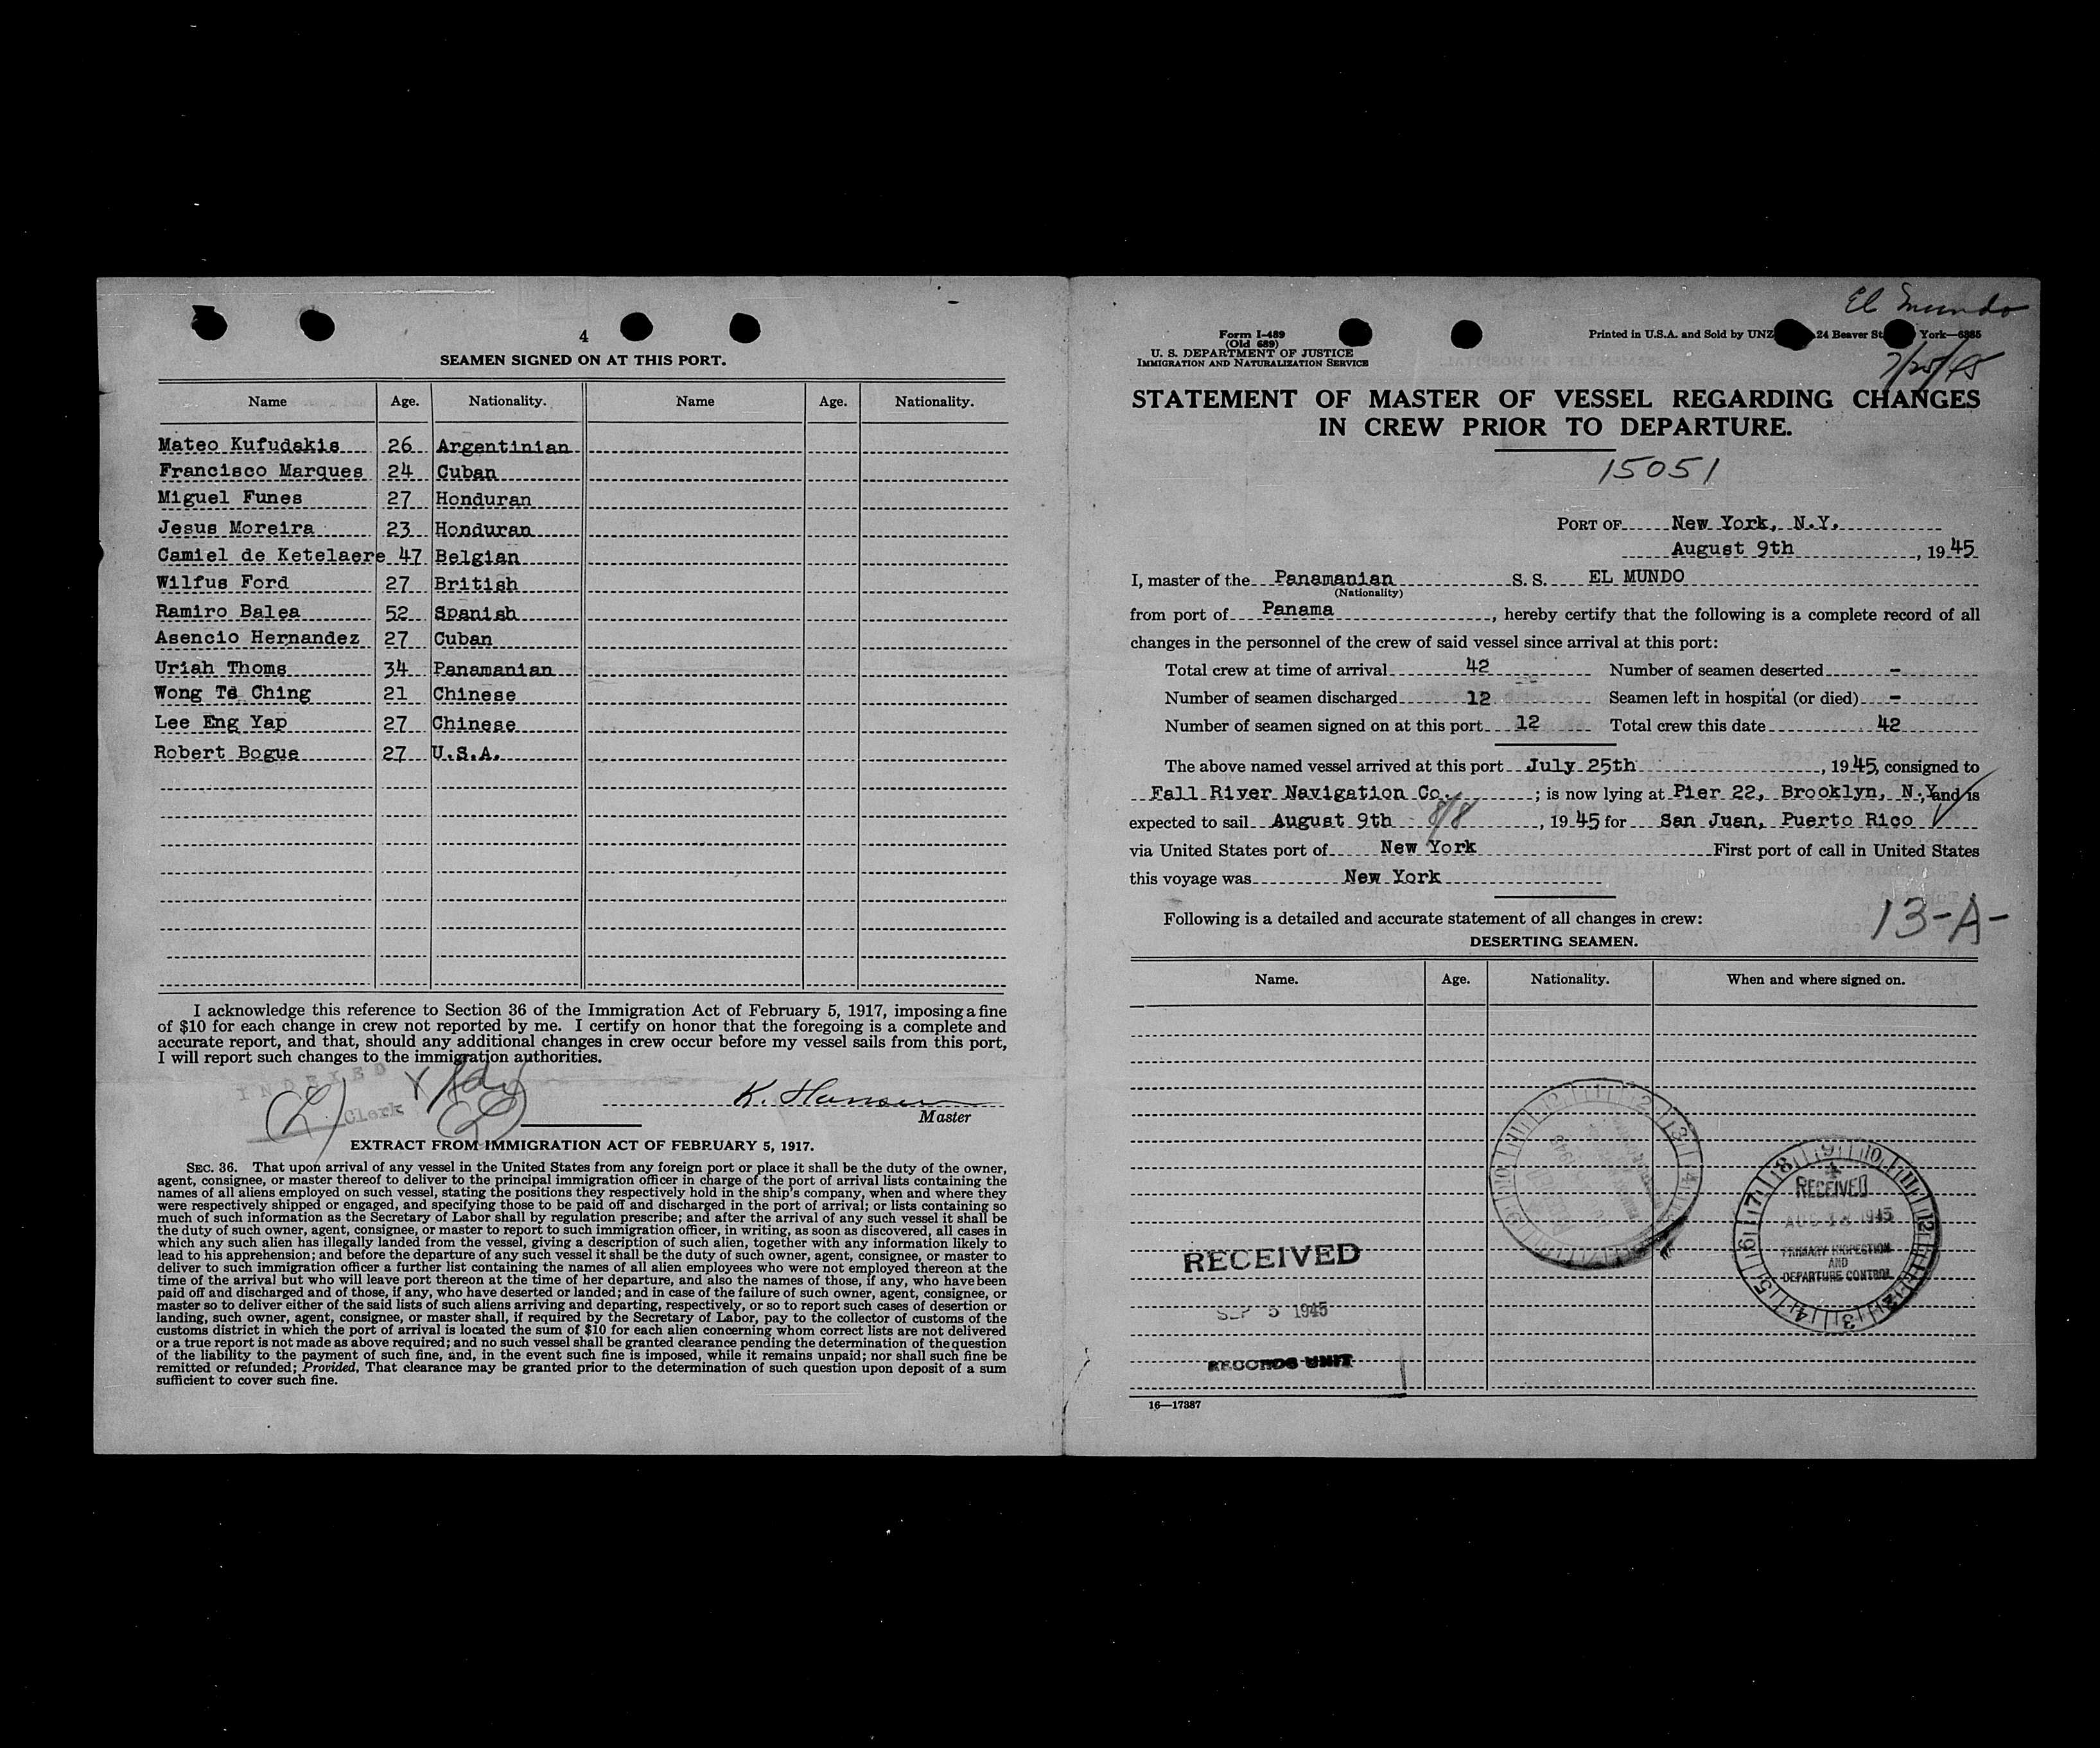 4
SEAMEN SIGNED ON AT THIS PORT.
Name Age. Nationality. Name Age. Nationality.
Mateo Kufudakis 26 Argentinian
Francisco Marques 24 Cuban
Miguel Funes 27 Honduran
Jesus Moreira 23 Honduran
Camiel de Ketelaere 47 Belgian
Wilfus Ford 27 British
Ramiro Balea 52 Spanish
Asencio Hernandez 27 Cuban
Uriah Thoms 34 Panamanian
Wong Te Ching 21 Chinese
Lee Eng Yap 27 Chinese
Robert Bogue 27 U.S.A.
I acknowledge this reference to Section 36 of the Immigration Act of February 5, 1917, imposing a fine
of $10 for each change in crew not reported by me. I certify on honor that the foregoing is a complete and
accurate report, and that, should any additional changes in crew occur before my vessel sails from this port,
I will report such changes to the immigration authorities.
INDEXED
Clerk
K. Hansen
Master
EXTRACT FROM IMMIGRATION ACT OF FEBRUARY 5, 1917.
SEC. 36. That upon arrival of any vessel in the United States from any foreign port or place it shall be the duty of the owner,
agent, consignee, or master thereof to deliver to the principal immigration officer in charge of the port of arrival lists containing the
names of all aliens employed on such vessel, stating the positions they respectively hold in the ship's company, when and where they
were respectively shipped or engaged, and specifying those to be paid off and discharged in the port of arrival; or lists containing so
much of such information as the Secretary of Labor shall by regulation prescribe; and after the arrival of any such vessel it shall be
the duty of such owner, agent, consignee, or master to report to such immigration officer, in writing, as soon as discovered, all cases in
which any such alien has illegally landed from the vessel, giving a description of such alien, together with any information likely to
lead to his apprehension; and before the departure of any such vessel it shall be the duty of such owner, agent, consignee, or master to
deliver to such immigration officer a further list containing the names of all alien employees who were not employed thereon at the
time of the arrival but who will leave port thereon at the time of her departure, and also the names of those, if any, who have been
paid off and discharged and of those, if any, who have deserted or landed; and in case of the failure of such owner, agent, consignee, or
master so to deliver either of the said lists of such aliens arriving and departing, respectively, or so to report such cases of desertion or
landing, such owner, agent, consignee, or master shall, if required by the Secretary of Labor, pay to the collector of customs of the
customs district in which the port of arrival is located the sum of $10 for each alien concerning whom correct lists are not delivered
or a true report is not made as above required; and no such vessel shall be granted clearance pending the determination of the question
of the liability to the payment of such fine, and, in the event such fine is imposed, while it remains unpaid; nor shall such fine be
remitted or refunded; Provided, That clearance may be granted prior to the determination of such question upon deposit of a sum
sufficient to cover such fine.
El Mundo
Form I-489
(Old 689)
U. S. DEPARTMENT OF JUSTICE
IMMIGRATION AND NATURALIZATION SERVICE
Printed in U.S.A. and Sold by UNZ 24 Beaver St York—6385
7/25/45
STATEMENT OF MASTER OF VESSEL REGARDING CHANGES
IN CREW PRIOR TO DEPARTURE.
15051
PORT OF New York, N.Y.
August 9th, 1945
I, master of the Panamanian S. S. EL MUNDO
(Nationality)
from port of Panama, hereby certify that the following is a complete record of all
changes in the personnel of the crew of said vessel since arrival at this port:
Total crew at time of arrival 42 Number of seamen deserted -
Number of seamen discharged 12 Seamen left in hospital (or died) -
Number of seamen signed on at this port 12 Total crew this date 42
The above named vessel arrived at this port July 25th, 1945, consigned to
Fall River Navigation Co.; is now lying at Pier 22, Brooklyn, N.Y. and is
expected to sail August 9th 8/8, 1945 for San Juan, Puerto Rico
via United States port of New York First port of call in United States
this voyage was New York
Following is a detailed and accurate statement of all changes in crew:
13-A-
DESERTING SEAMEN.
Name. Age. Nationality. When and where signed on.
RECEIVED
SEP 5 1945
RECORDS UNIT
RECEIVED
AUG 1945
PRIMARY INSPECTION
AND
DEPARTURE CONTROL
16—17387